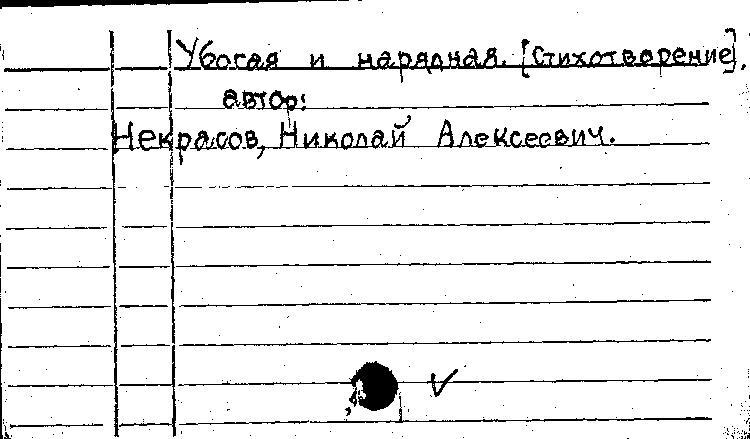 Убогая и нарядная. [Стихотворение].
автор:
Некрасов, Николай Алексеевич.